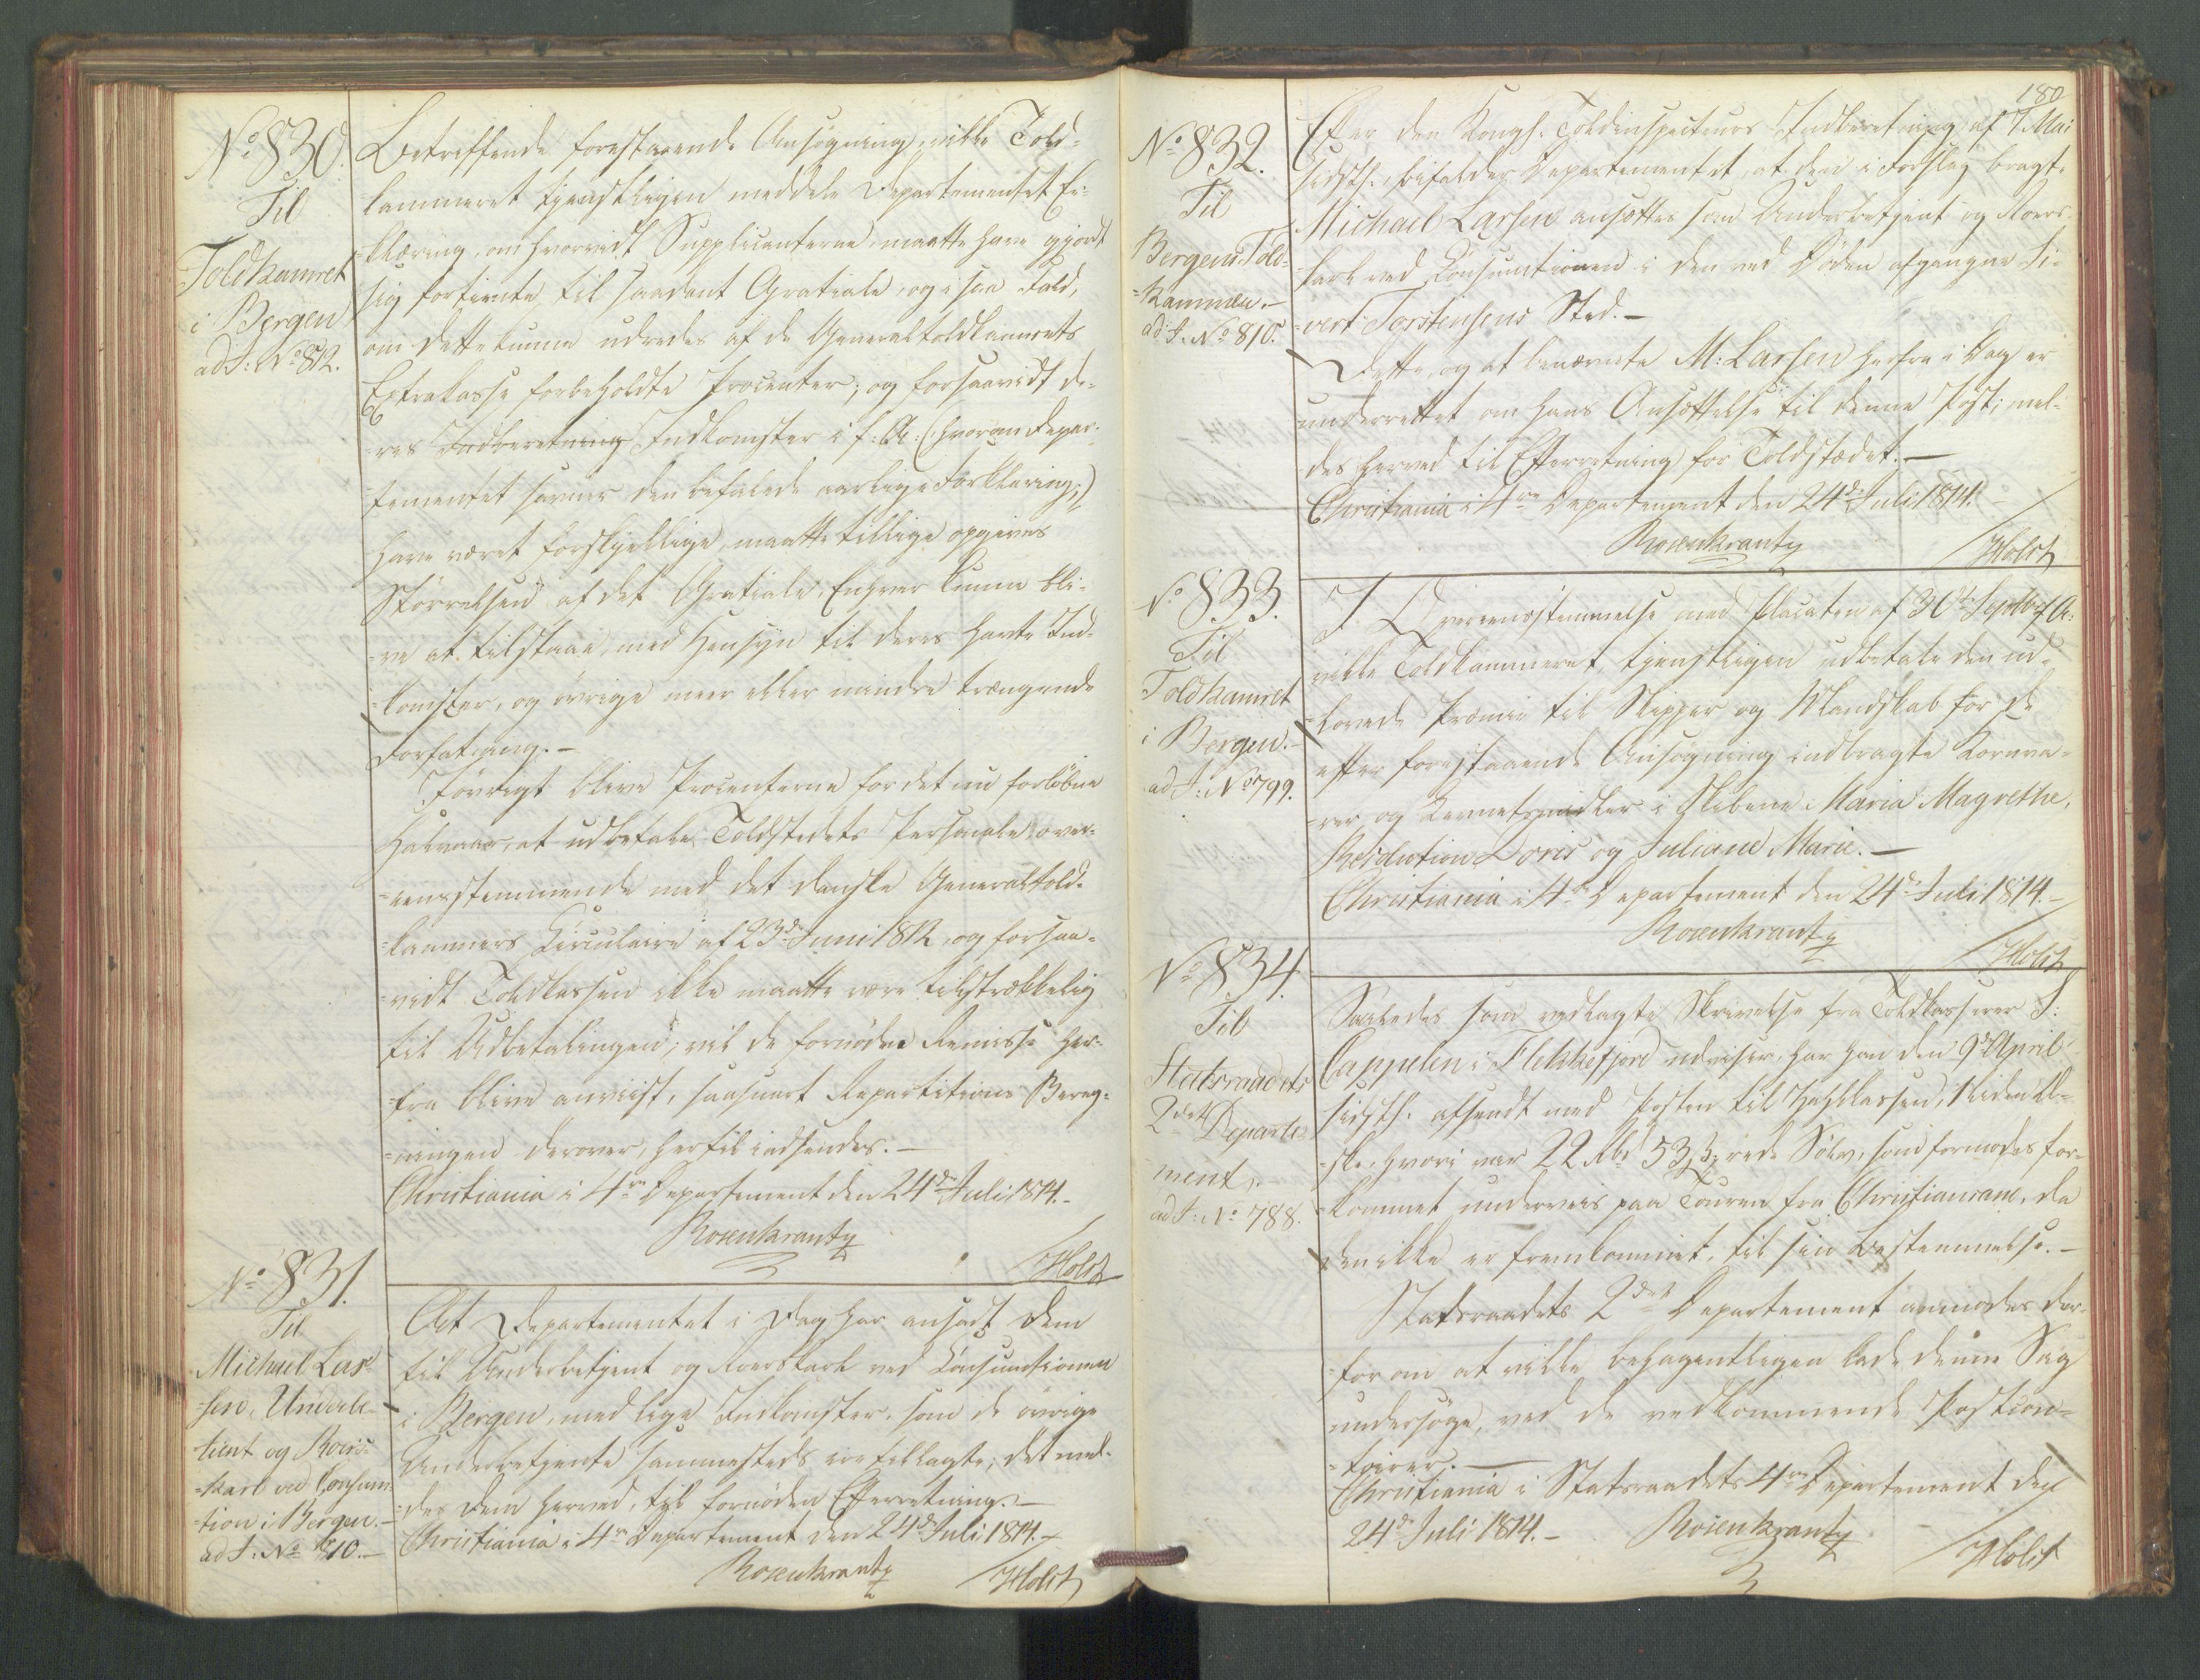 No 830.
Til
Toldkamret
i Bergen
ad J: No 812.
Betreffende forestaaende Ansøgning, ville Told-
kammeret tjenstligen meddele Departementet Er-
klæring, om hvorvidt Supplicanterne maatte have gjort
sig fortiente til saadant Gratiale, og i saa Fald,
om dette kunne udredes af de Generaltoldkamrets
Extrakasse forbeholdte Procenter; og forsaavidt de-
res Indberetning Indkomster i f: A: (hvorom Depar-
tementet savner den befalede aarlige Forklaring,)
have været forskjellige, maatte tillige opgives
Størrelsen af det Gratiale, Enhver kunne bli-
ve at tilstaae, med Hensyn til deres havte Ind-
komster, og øvrige meer eller mindre trængende
Forfatning.-
Iøvrigt blive Procenterne for det nu forløbne
Halvaar, at udbetale Toldstedets Personale over-
eensstemmende med det danske Generaltold-
kammers Circulaire af 23de Juni 1812, og forsaa-
vidt Toldkassen ikke maatte være tilstrækkelig
til Udbetalingen, vil de fornødne Remisse her-
fra blive anviist, saasnart Repartitions Bereg-
ningen derover, hertil indsendes.-
Christiania i 4de Departement den 24de Juli 1814.-
Rosenkrantz
Holst
No 831.
Til
Michael Lar-
sen, Underbe-
tient og Roers-
karl ved Consum-
tion i Bergen.-
ad J: No 810.-
At Departementet i Dag har ansat Dem
til Underbetjent og Roerskarl ved Consumtionen
i Bergen, med lige Indkomster, som de øvrige
Underbetjente sammesteds ere tillagte, det mel-
des Dem herved, til fornøden Efterretning.-
Christiania i 4de Departement den 24de Juli 1814.-
Rosenkrantz
Holst
180
No 832.
Til
Bergens Told-
kammer.-
ad J. No 810.
Efter den Kongl. Toldinspecteurs Indberetning af 7 Mai
sidstl., bifalder Departementet, at den i Forslag bragte
Michael Larsen ansættes som Underbetjent og Roers-
karl ved Consumtionen i den ved Døden afgangne Si-
vert Torstensens Sted.-
Dette, og at benævnte M: Larsen herfra i Dag er
underrettet om hans Ansættelse til denne Post, mel-
des herved til Efterretning for Toldstædet.-
Christiania i 4de Departement den 24de Juli 1814.-
Rosenkrantz
Holst
No 833.
Til
Toldkamret
i Bergen.-
ad J: No 799.
I Overeensstemmelse med Placaten af 30te Septbr f. A:
ville Toldkammeret tjenstligen udbetale den ud-
lovede Præmie til Skipper og Mandskab for de
efter forestaaende Ansøgning indbragte Kornva-
rer og Levnetsmidler i Skibene Maria Magrethe,
Resolution Doris og Juliane Marie.-
Christiania i 4de Departement den 24de Juli 1814.-
Rosenkrantz
Holst
No 834.
Til
Statsraadets
2det Departe-
ment.
ad J: No 788.
Saaledes som vedlagte Skrivelse fra Toldkasserer J:
Cappelen i Flekkefjord udviser, har han den 9de April
sidstl. afsendt med Posten til
hvori var 22 Rbd 53 s: rede Sølv, som formodes for-
kommet underveis paa Touren fra Christiansand, da
den ikke er fremkommet til sin Bestemmelse.-
Statsraadets 2det Departement anmodes der-
for om at ville behagentligen lade denne Sag
undersøge, ved de vedkommende Postcon-
toirer.-
Christiania i Statsraadets 4de Departement den
24de Juli 1814.- Rosenkrantz
Holst